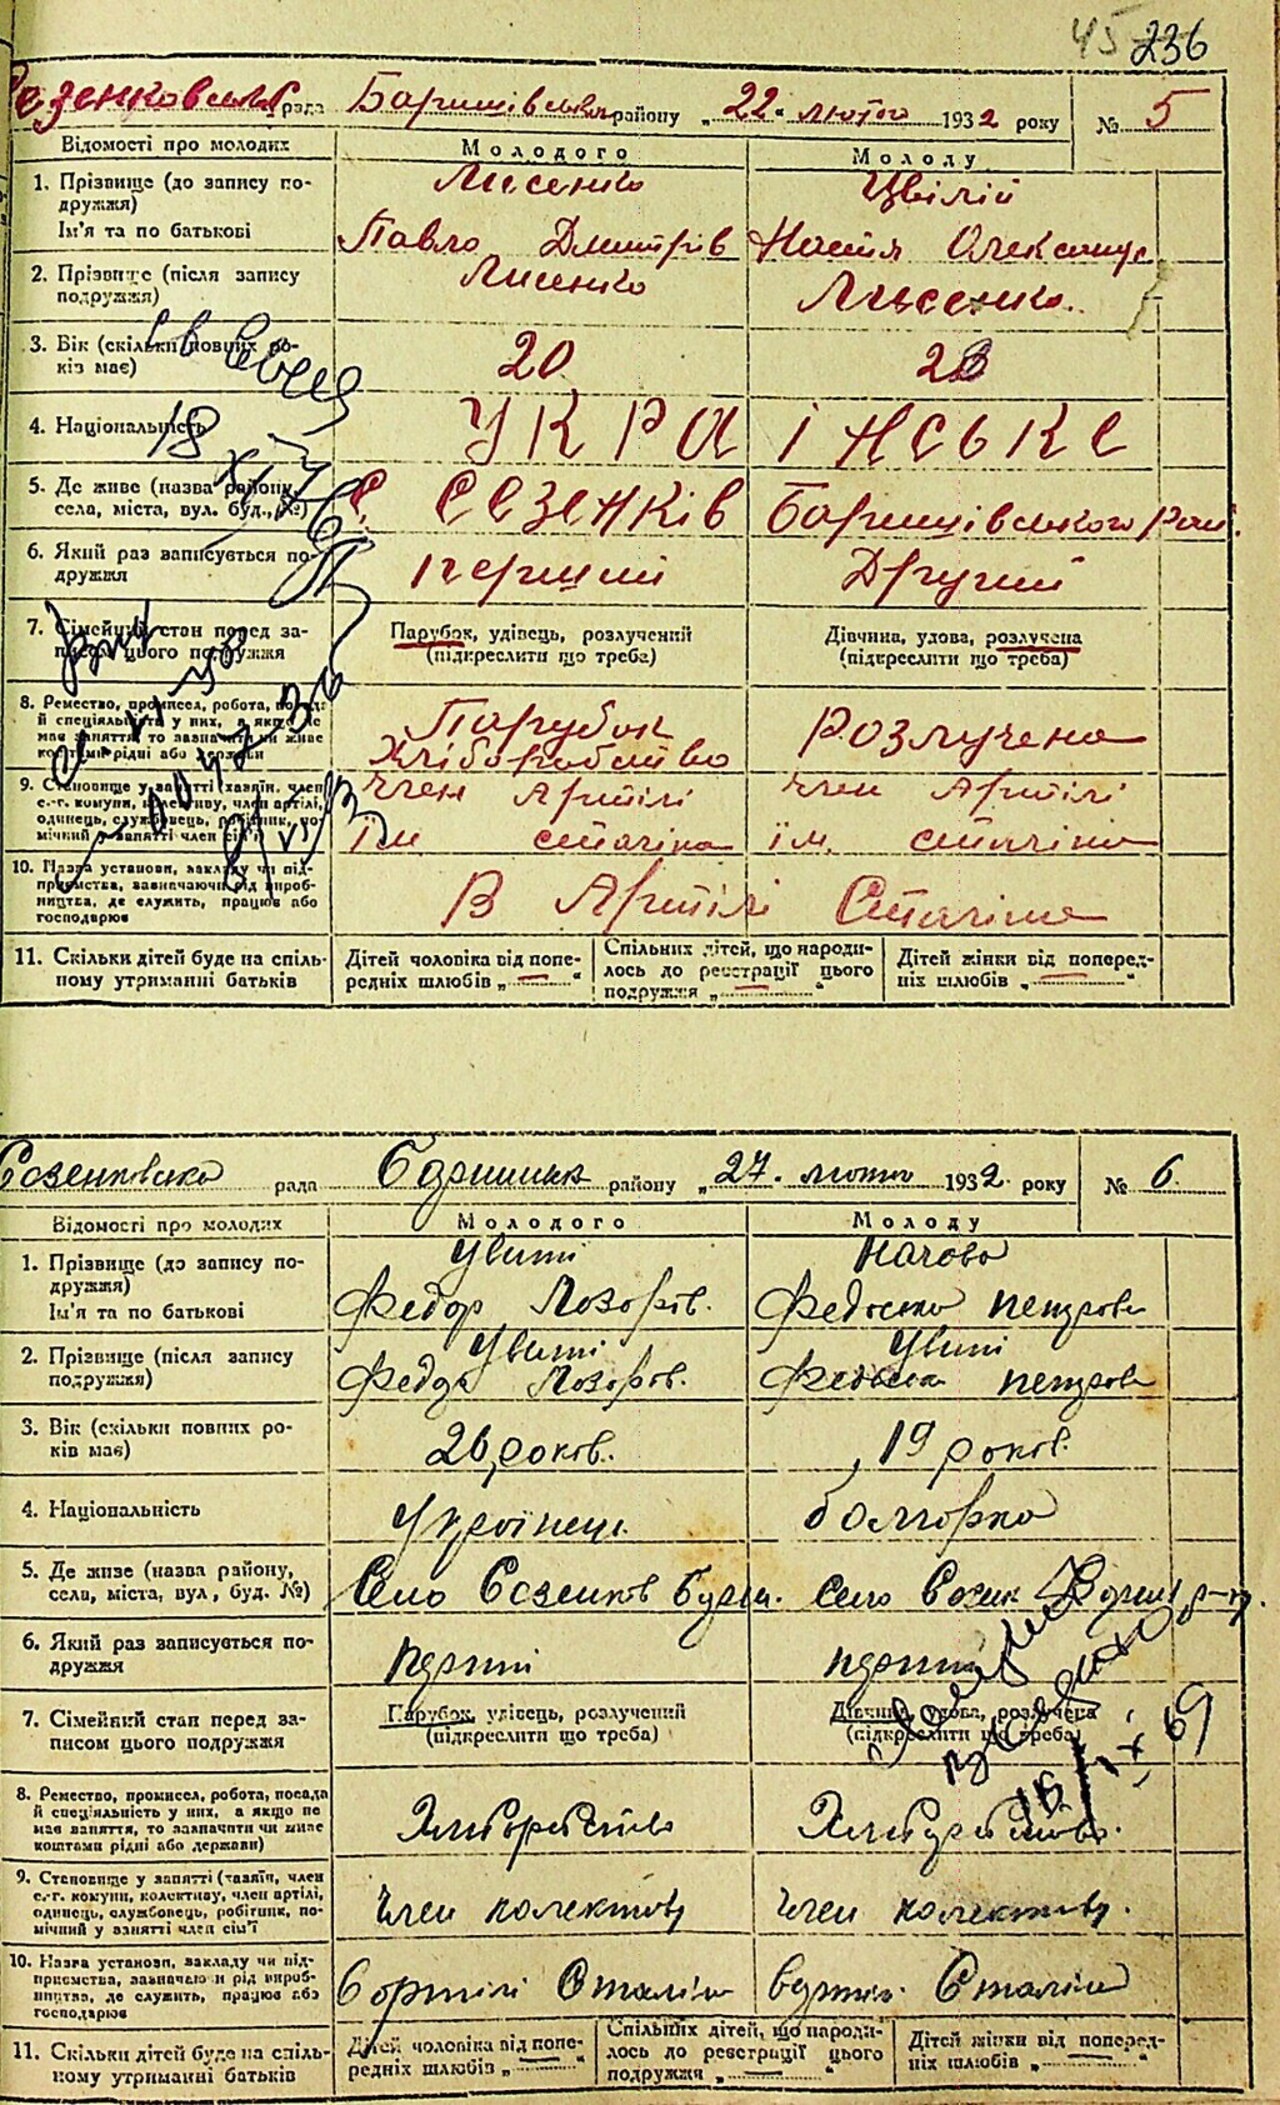 45 236
Сезенковська рада Баришівського району „22“ лютого 1932 року № 5
Відомості про молодих Молодого Молоду
1. Прізвище (до запису по- Лисенко Цвілій
дружжя)
Ім'я та по батькові Павло Дмитрів Настя Олександр
2. Прізвище (після запису Лисенко Лисенко
подружжя)
3. Вік (скільки повних ро- 20 23
ків має)
4. Національність УКРАЇНСЬКЕ
18
5. Де живе (назва району, С. Сезенків Баришівського рай.
села, міста, вул. буд., №)
6. Який раз записується по- перший Другий
дружжя
7. Сімейний стан перед за- Парубок, удівець, розлучений Дівчина, удова, розлучена
писом цього подружжя (підкреслити що треба) (підкреслити що треба)
8. Ремество, промисел, робота, посада
й спеціяльність у них, а якщо не Парубок Розлучена
має заняття, то зазначити чи живе Хліборобство
коштами рідні або держави
9. Становище у занятті (хазяїн, член член Артілі член Артілі
с.-г. комуни, колективу, член артілі,
одинець, службовець, робітник, по- їм сталіна їм. сталіна
мічний у занятті член сім'ї
10. Назва установи, закладу чи під-
приємства, зазначаючи рід вироб- В Артілі Сталіна
ництва, де служить, працює або
господарює
11. Скільки дітей буде на спіль- Дітей чоловіка від попе- Спільних дітей, що народи- Дітей жінки від поперед-
ному утриманні батьків редніх шлюбів „ — “ лось до реєстрації цього ніх шлюбів „ — “
подружжя „ — “
Сезенковска рада Баришик району „27. лютого 1932 року № 6.
Відомості про молодих Молодого Молоду
1. Прізвище (до запису по- Цвилі Начова
дружжя)
Ім'я та по батькові Федор Лазорів. Федоска петрова
2. Прізвище (після запису Цвилі Цвилі
подружжя) Федор Лазорів. Федоска петрова
3. Вік (скільки повних ро- 26 років. 19 років.
ків має)
4. Національність Українець болгарка
5. Де живе (назва району, Село Сезенков Бариш. село Сезенк Бариш р-ну.
села, міста, вул., буд. №)
6. Який раз записується по- перший перший
дружжя
7. Сімейний стан перед за- Парубок, удівець, розлучений Дівчина, удова, розлучена
писом цього подружжя (підкреслити що треба) (підкреслити що треба)
16/IX 69
8. Ремество, промисел, робота, посада
й спеціяльність у них, а якщо не
має заняття, то зазначити чи живе Хліборобство Хліборобство.
коштами рідні або держави)
9. Становище у занятті (хазяїн, член
с.-г. комуни, колективу, член артілі,
одинець, службовець, робітник, по- член колективу член колективу.
мічний у занятті член сім'ї
10. Назва установи, закладу чи під-
приємства, зазначаючи рід вироб- В артілі Сталін В артілі Сталін
ництва, де служить, працює або
господарює
11. Скільки дітей буде на спіль- Дітей чоловіка від попе- Спільних дітей, що народи- Дітей жінки від поперед-
ному утриманні батьків редніх шлюбів „ — “ лось до реєстрації цього ніх шлюбів „ — “
подружжя „ — “